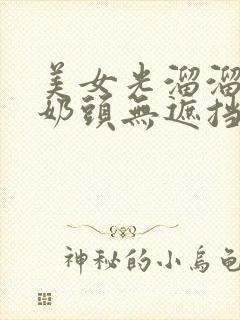 美女光溜溜
奶頭無遮挡
神秘的小烏龟